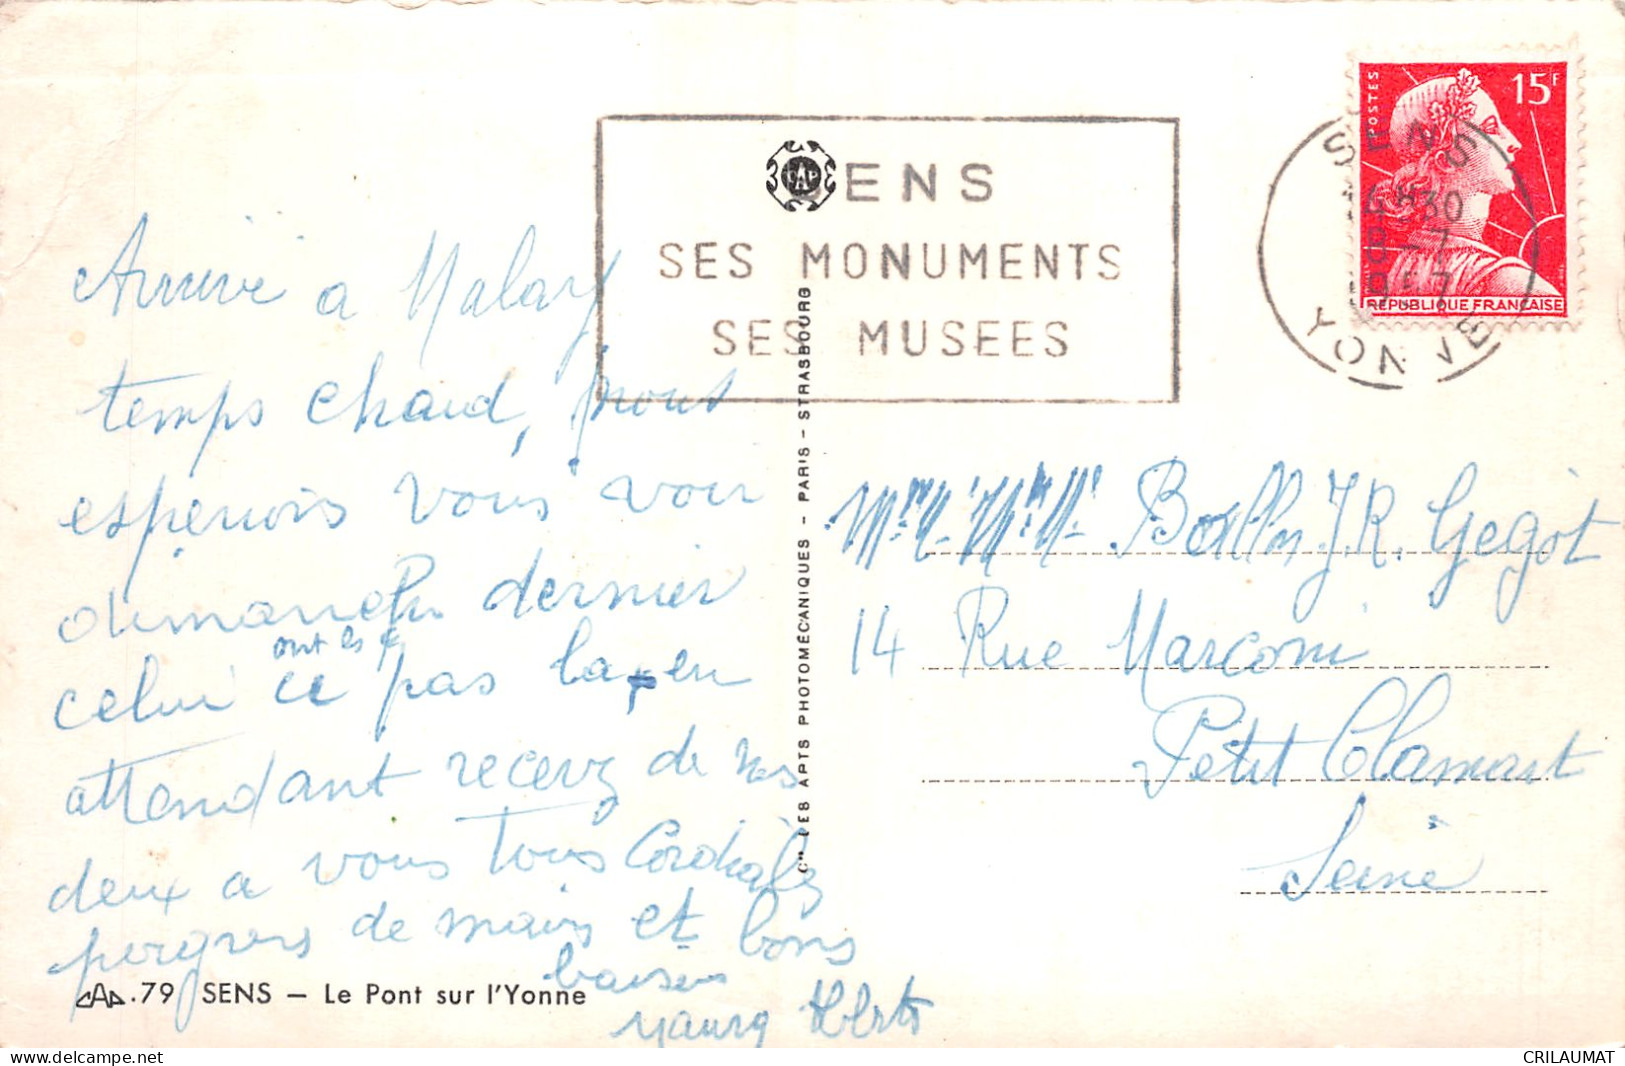 SENS
SES MONUMENTS
SES MUSEES
POSTES
15F
REPUBLIQUE FRANÇAISE
SENS
30
YONNE
CAP
Arrivé a Malay
temps chaud, nous
esperions vous voir
dimanche dernier
celui ce pas la en
ont les
attendant recevez de nos
deux a vous Tous Cordiales
de mains et bons
baisers
14 Rue Marconi
Petit Clamart
Seine
Cie DES ARTS PHOTOMÉCANIQUES - PARIS - STRASBOURG
CAP .79 SENS — Le Pont sur l'Yonne
delcampe.net
CRILAUMAT